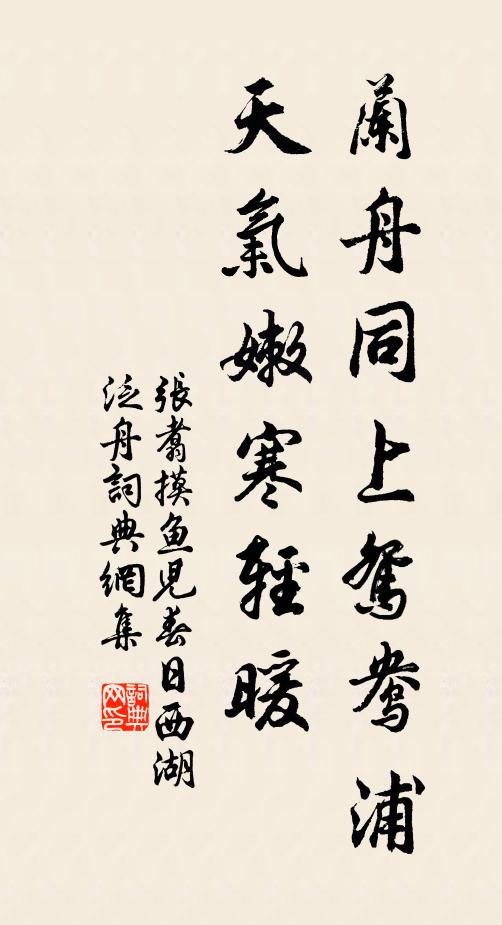 蘭舟同上鴛鴦浦
天氣嫩寒輕暖
張翥摸魚兒春日西湖
泛舟詞典網集
詞典網印